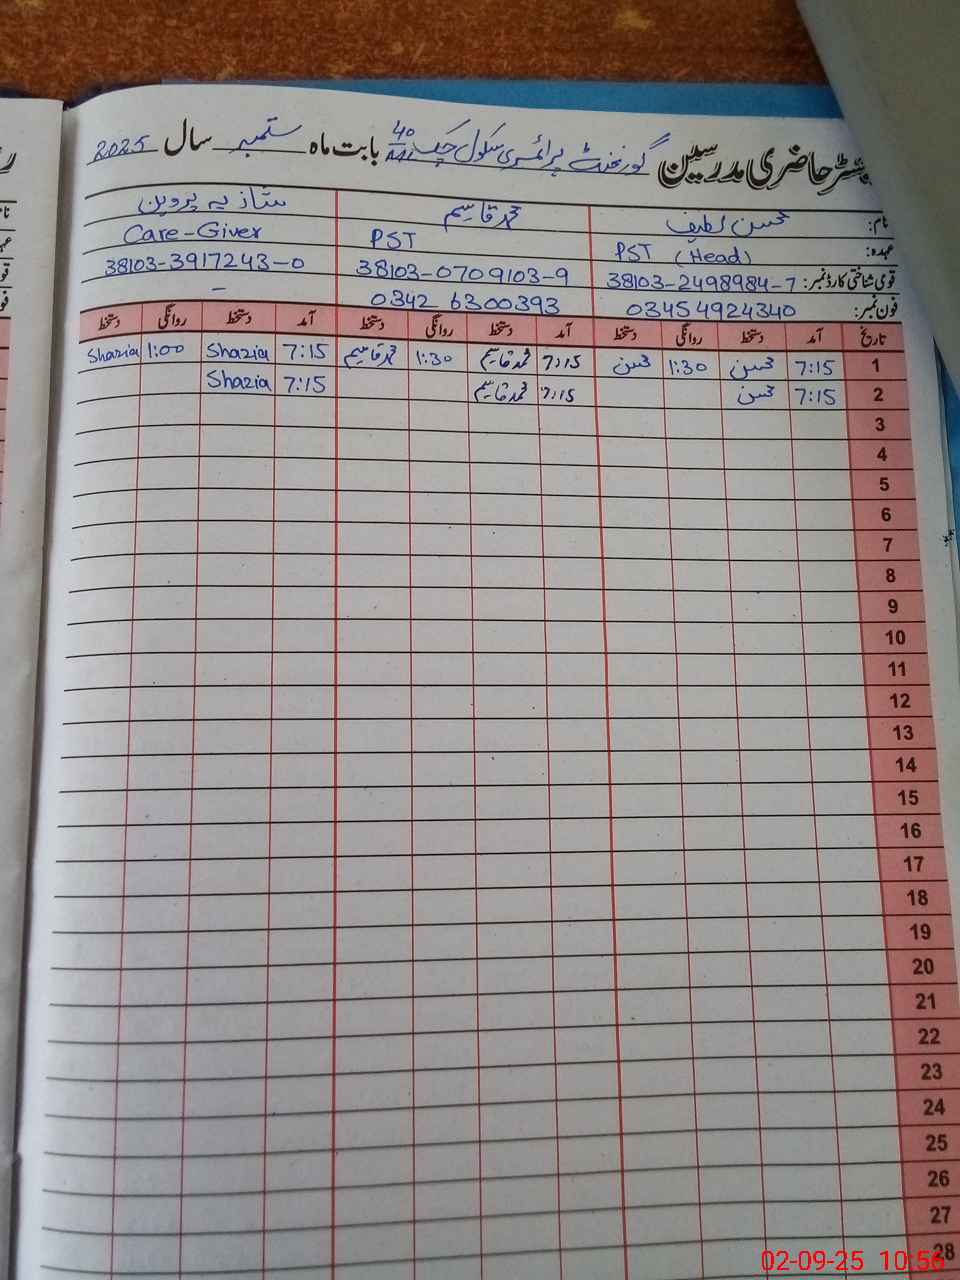 رجسٹر حاضری مدرسین گورنمنٹ پرائمری سکول چک 40 بابت ماہ ستمبر سال 2025
نام: محسن لطیف محمد قاسم شازیہ پروین
عہدہ: PST (Head) PST Care-Giver
قومی شناختی کارڈ نمبر: 38103-2498984-7 38103-0709103-9 38103-3917243-0
فون نمبر: 03454924340 0342 6300393 -
تاریخ آمد دستخط روانگی دستخط آمد دستخط روانگی دستخط آمد دستخط روانگی دستخط
1 7:15 محسن 1:30 محسن 7:15 محمد قاسم 1:30 محمد قاسم 7:15 Shazia 1:00 Shazia
2 7:15 محسن 7:15 محمد قاسم 7:15 Shazia
3
4
5
6
7
8
9
10
11
12
13
14
15
16
17
18
19
20
21
22
23
24
25
26
27
28
02-09-25 10:56